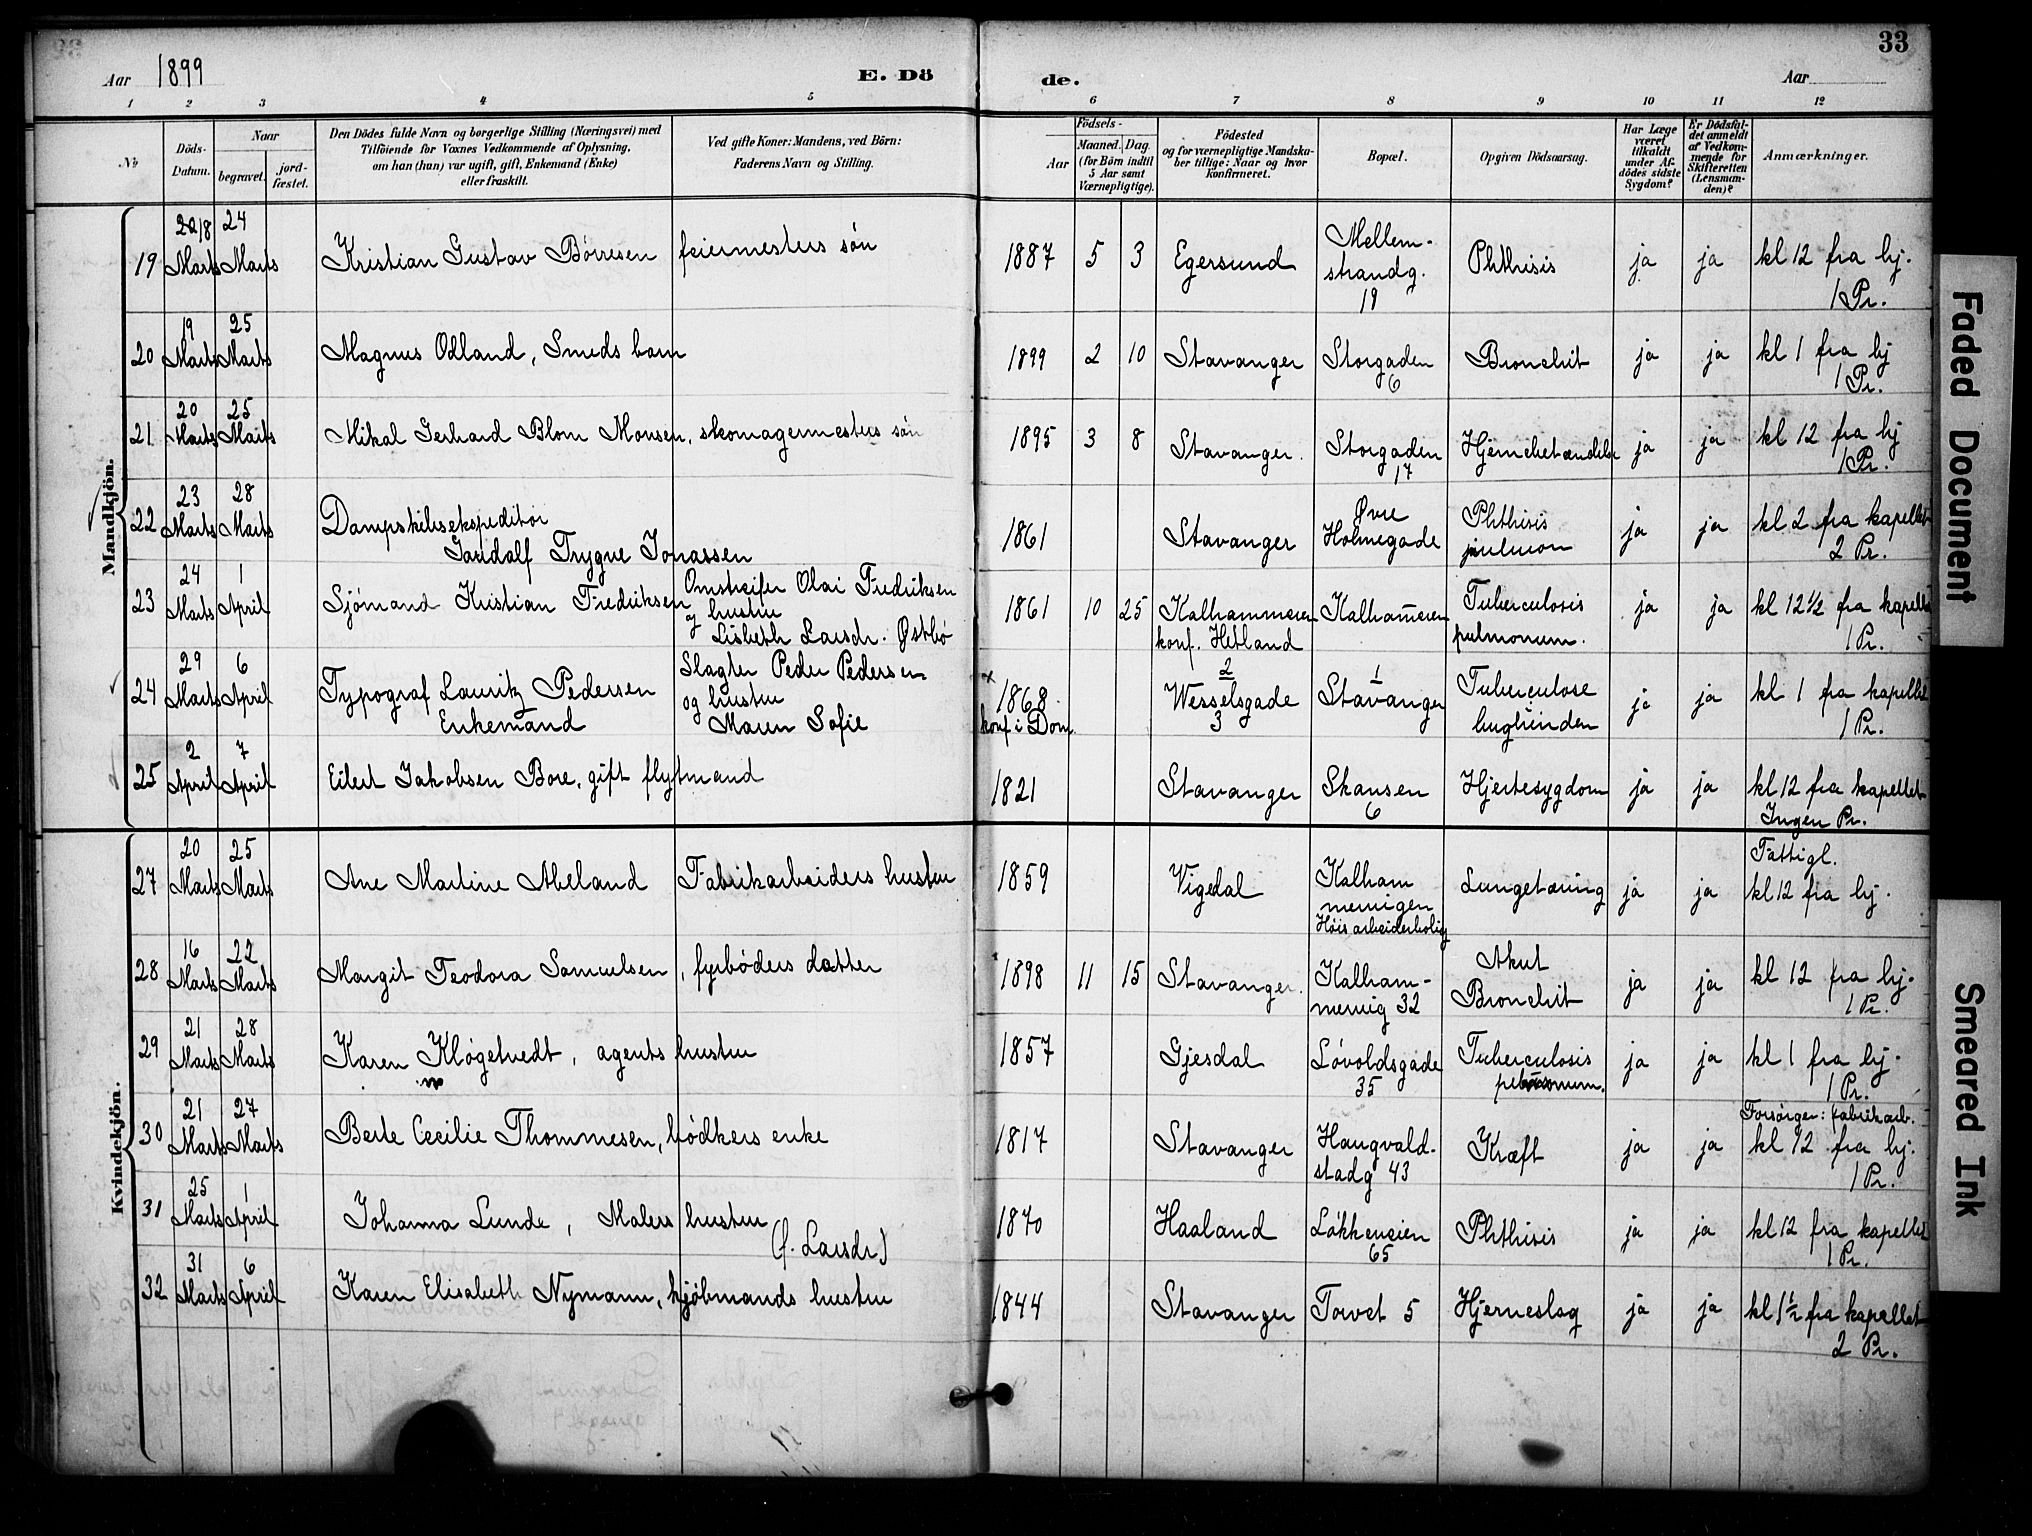 Aar 1899
E. Dö
de.
Aar
33
1 2 3 4 5
6 7 8 9 10 11 12
No
Döds-
Datum.
Naar
begravet.
jord-
fæstet.
Den Dödes fulde Navn og borgerlige Stilling (Næringsvei) med
Tilföiende for Voxnes Vedkommende af Oplysning,
om han (hun) var ugift, gift, Enkemand (Enke)
eller fraskilt.
Ved gifte Koner: Mandens, ved Börn:
Faderens Navn og Stilling.
Födsels-
Aar
Maaned. Dag.
(for Börn indtil
5 Aar samt
Værnepligtige).
Födested
og for værnepligtige Mandska-
ber tillige: Naar og hvor
Konfirmeret.
Bopæl.
Opgiven Dödsaarsag.
Har Læge
været
tilkaldt
under Af-
dödes sidste
Sygdom?
Er Dödsfal-
det anmeldt
af Vedkom-
mende for
Skifteretten
(Lensman-
den)?
Anmærkninger.
Mandkjön.
19 18 Marts 24 Marts Kristian Gustav Börresen feiermesters sön 1887 5 3 Egersund Mellem-
strandg.
19 Phthisis ja ja kl 12 fra hj.
1 Pr.
20 19 Marts 25 Marts Magnus Odland, Smeds barn 1899 2 10 Stavanger Storgaden
6 Bronchit ja ja kl 1 fra hj
1 Pr.
21 20 Marts 25 Marts Mikal Gerhard Blom Monsen, skomagermesters sön 1895 3 8 Stavanger. Storgaden
17 Hjernebetændelse ja ja kl 12 fra hj
1 Pr.
22 23 Marts 28 Marts Dampskibsekspeditör
Gandolf Trygve Jonassen 1861 Stavanger Øvre
Holmegade Phthisis
pulmon ja ja kl 2 fra kapellet
2 Pr.
23 24 Marts 1 April Sjömand Kristian Fredriksen Omstreifer Olai Fredriksen
og hustru
Lisbeth Larsdr. Østbö 1861 10 25 Kalhammeren
konf. Hetland Kalhammeren Tuberculosis
pulmonum. ja ja kl 12 1/2 fra kapellet
1 Pr.
24 29 Marts 6 April Typograf Lauritz Pedersen
Enkemand Slagter Peder Pedersen
og hustru
Maren Sofie 1868
konf i Dom. 2
Wesselsgade
3 1
Stavanger Tuberculose
bughinden ja ja kl 1 fra kapellet
1 Pr.
25 2 April 7 April Eilert Jakobsen Bore, gift flytmand 1821 Stavanger Skansen
6 Hjertesygdom ja ja kl 12 fra kapellet
Ingen Pr.
Kvindekjön.
27 20 Marts 25 Marts Ane Martine Abeland Fabrikarbeiders hustru 1859 Vigedal Kalham
mervigen
Höis arbeiderbolig Lungetæring ja ja Fattigl.
kl 12 fra hj.
28 16 Marts 22 Marts Margit Teodora Samuelsen, fyrböders datter 1898 11 15 Stavanger. Kalham-
mervig 32 Akut
Bronchit ja ja kl 12 fra hj.
1 Pr.
29 21 Marts 28 Marts Karen Kløgetvedt, agents hustru 1857 Gjesdal Lövoldsgade
35 Tuberculosis ja ja kl 1 fra hj.
1 Pr.
30 21 Marts 27 Marts Berte Cecilie Thommesen, bödkers enke 1817 Stavanger Haugvald-
stadg 43 Kræft ja ja Forsörger: fabrikarb.
kl 12 fra hj.
1 Pr.
31 25 Marts 1 April Johanna Lunde, Malers hustru
(f. Larsdr.) 1870 Haaland Lökkeveien
65 Phthisis ja ja kl 12 fra kapellet
1 Pr.
32 31 Marts 6 April Karen Elisabeth Nymann, kjöbmands hustru 1844 Stavanger Torvet 5 Hjerneslag ja ja kl 1 1/2 fra kapellet
2 Pr.
Faded Document
Smeared Ink